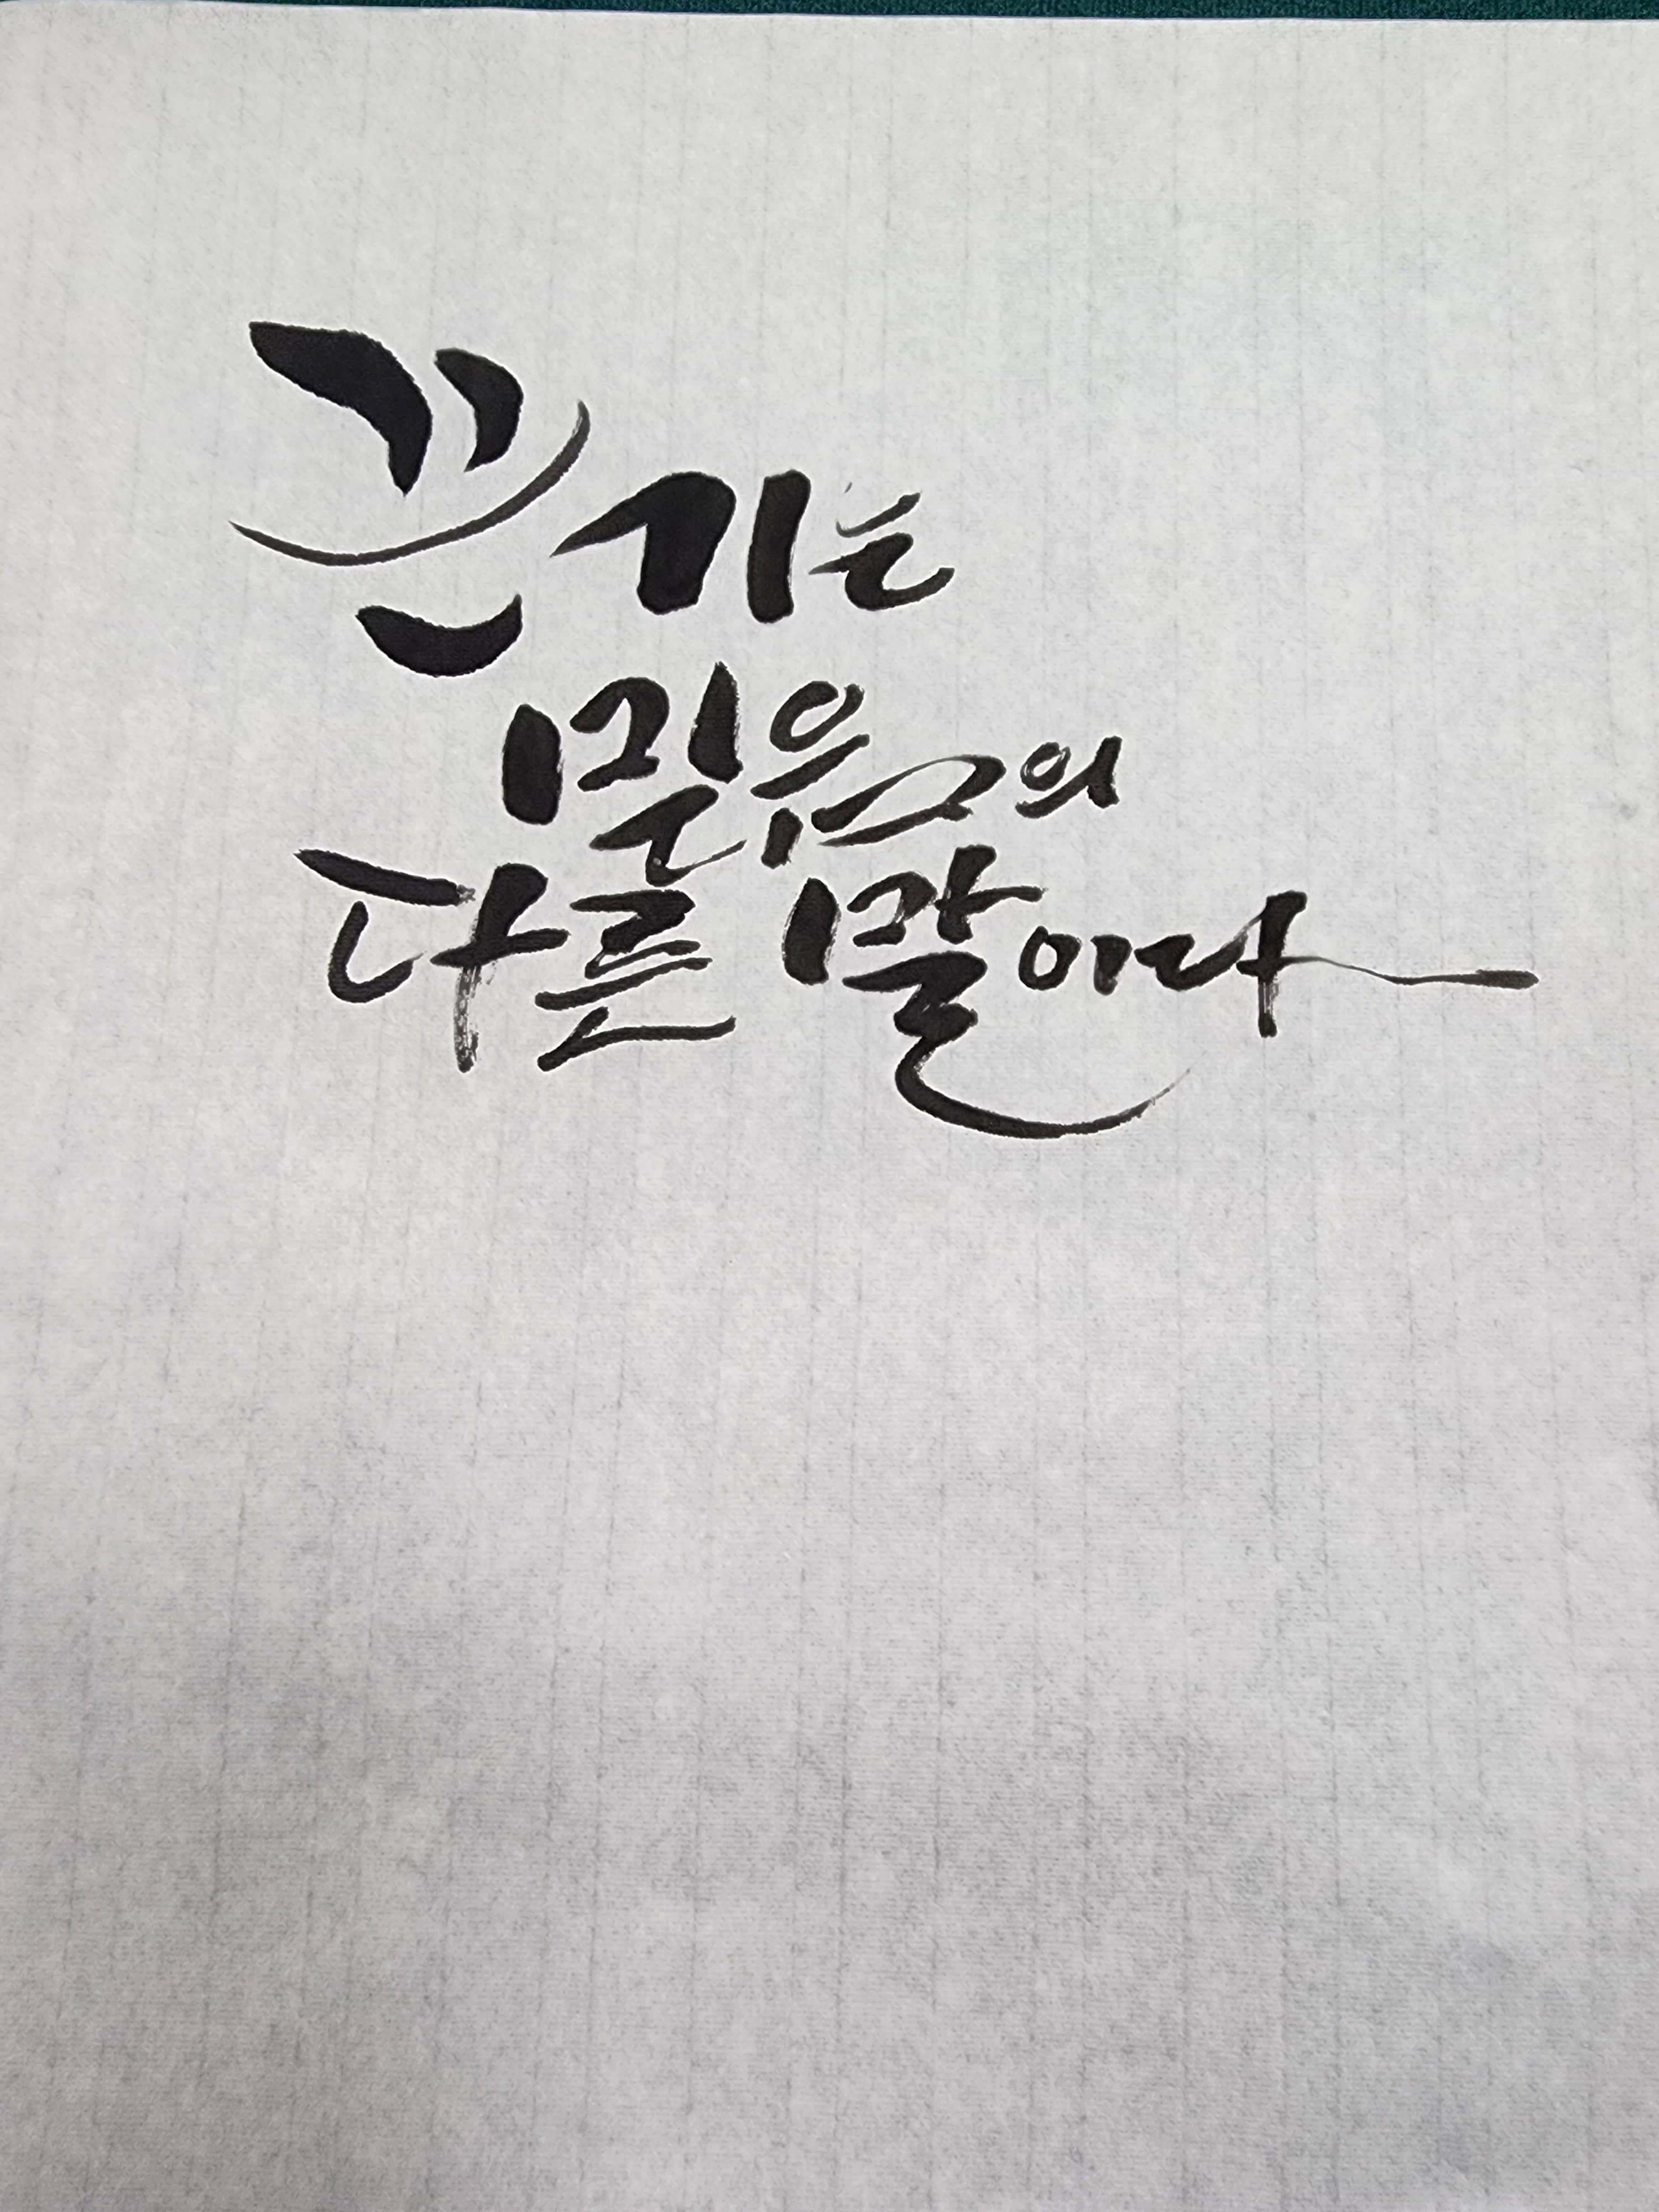 끈기는
믿음의
다른 말이다